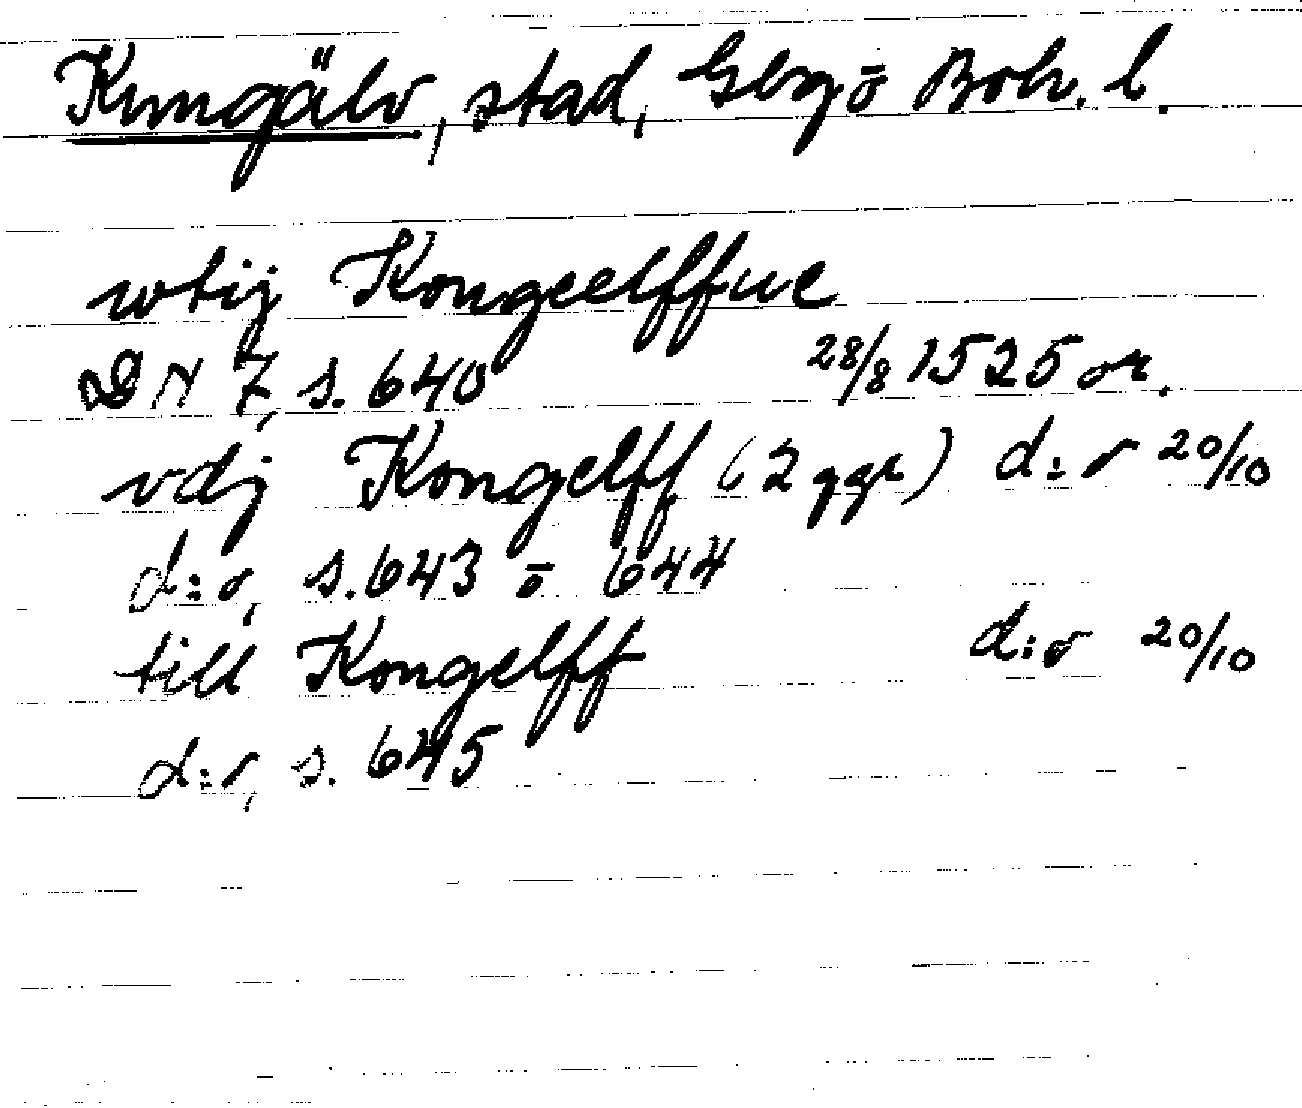 Kungälv, stad, Gbg ō Boh. l.
wtij Kongeelffue
DN 7, s. 640 28/8 1525 or.
vdj Kongelff (2 ggr) d:o 20/10
d:o, s. 643 ō 644
till Kongelff d:o 20/10
d:o, s. 645